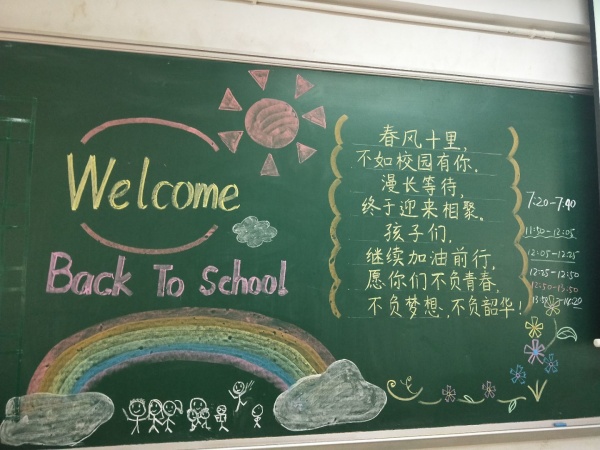 Welcome
Back To School
春风十里,
不如校园有你。
漫长等待,
终于迎来相聚。
孩子们,
继续加油前行,
愿你们不负青春,
不负梦想,不负韶华!
7:20-7:40
11:50-12:05
12:05-12:25
12:25-12:50
12:50-13:50